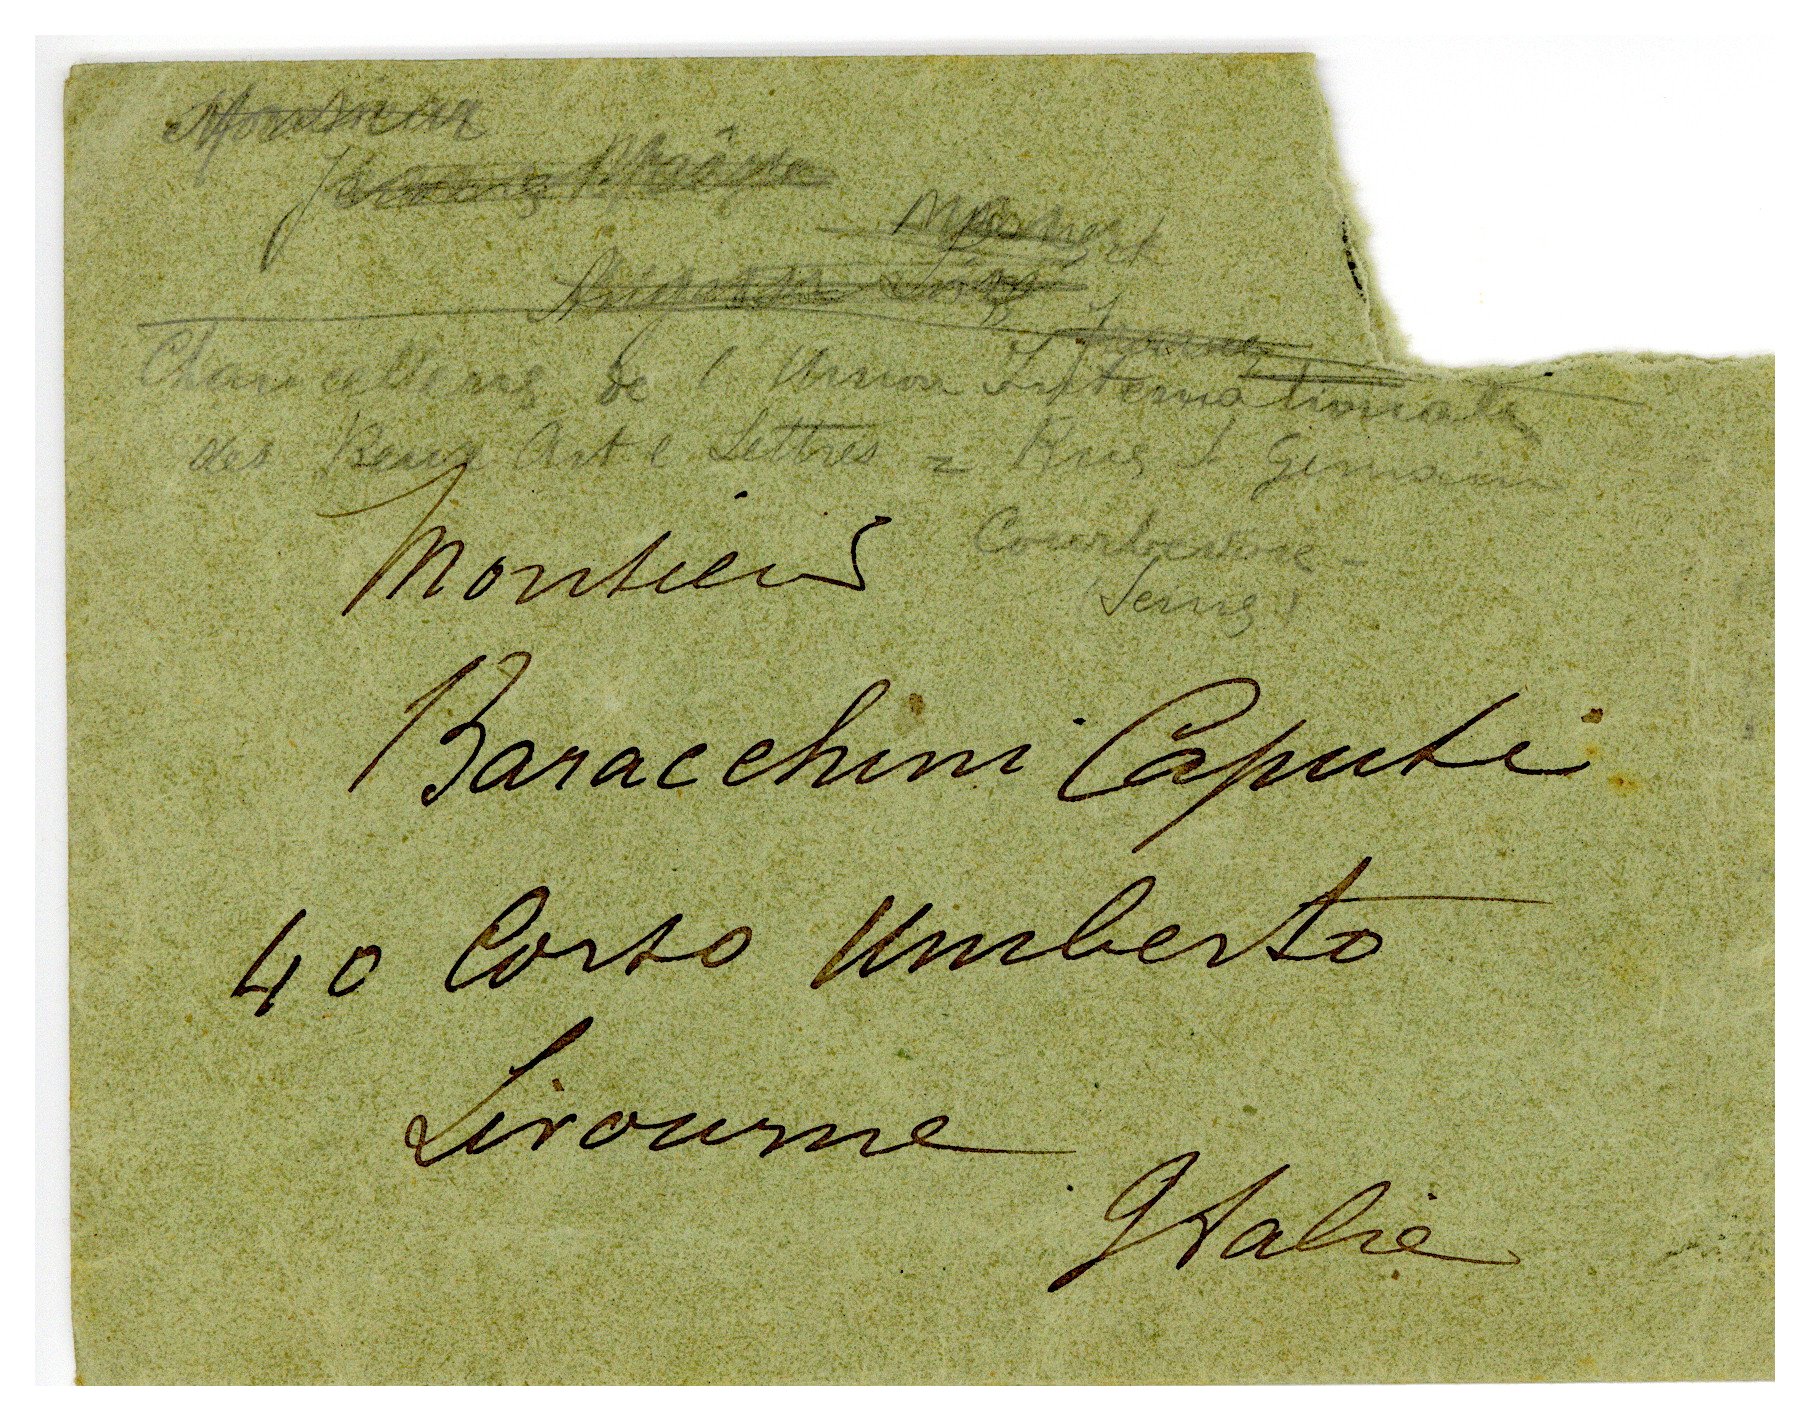 Chancellerie de l'Union Internationale
des Beux Art e Lettres = Rue St Germain
Courbevoie -
(Seine)
Monsieur
Baracchini Caputi
40 Corso Umberto
Livourne
Italie